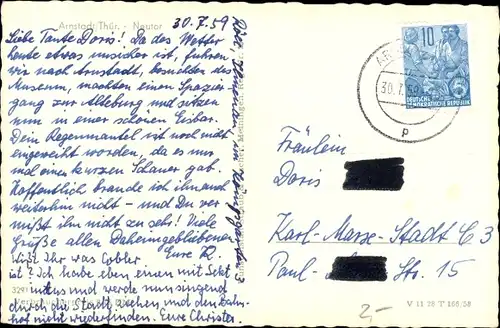 Arnstadt/Thür. - Neutor
30.7.59
Liebe Tante Doris! Da das Wetter
heute etwas unsicher ist, fuhren
wir nach Arnstadt, besuchten das
Museum, machten einen Spazier
gang zur Alteburg und sitzen
nun in einer schönen Eisbar.
Dein Regenmantel ist noch nicht
eingeweiht worden, da es nur
mal einen kurzen Schauer gab.
Hoffentlich brauche ich ihn auch
weiterhin nicht - und Du ver
mißt ihn nicht zu sehr! Viele
Grüße allen Daheimgebliebenen
Eure R.
Wißt Ihr was
ist? Ich habe eben einen mit Sekt
und werde nun singend
durch die Stadt ziehen und den Bahn
hof nicht wiederfinden. Eure Christa
ARNS
30.7.59
p
10
DEUTSCHE
DEMOKRATISCHE REPUBLIK
Fräulein
Doris
Karl-Marx-Stadt C 3
Paul- Str. 15
2,-
V 11 28 T 166/58